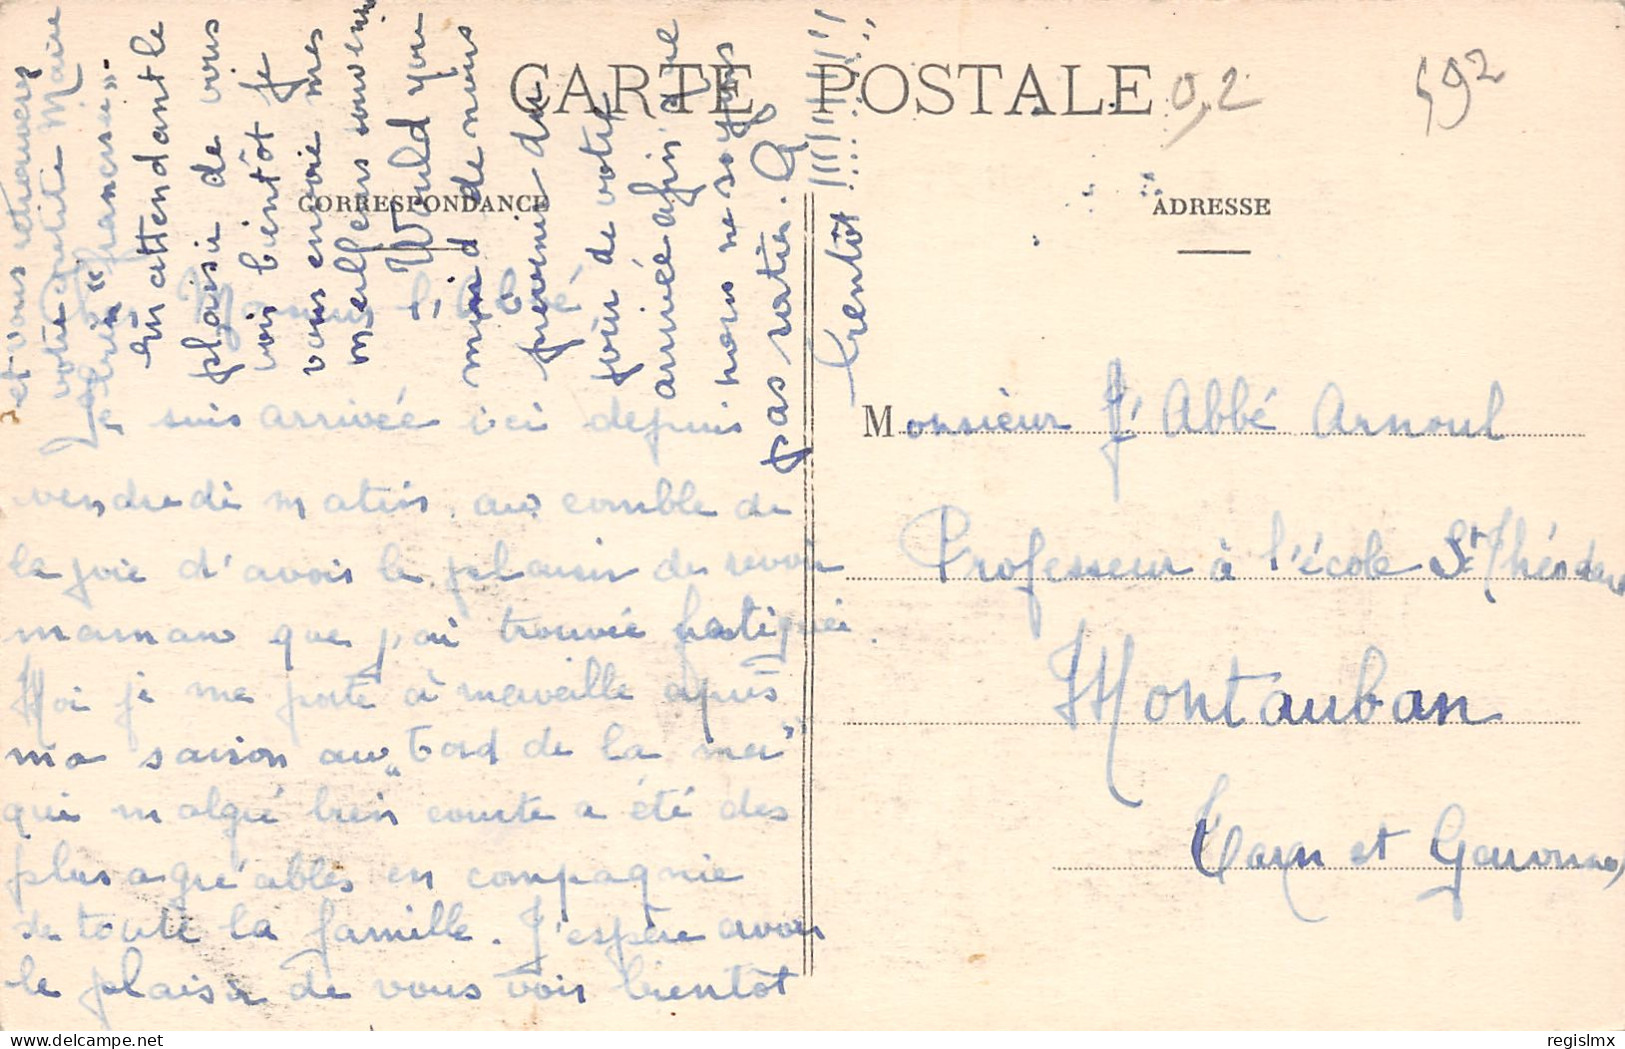 CARTE POSTALE
0,2
592
CORRESPONDANCE
ADRESSE
Cher Monsieur l'Abbé
Je suis arrivée ici depuis
vendredi matin, au comble de
la joie d'avoir le plaisir de revoir
maman que j'ai trouvée fatiguée.
Moi je me porte à merveille après
ma saison au "bord de la mer"
qui malgré bien courte a été des
plus agréables en compagnie
de toute la famille. J'espère avoir
le plaisir de vous voir bientôt
et vous retrouverez
votre petite Marie
"française".
En attendant le
plaisir de vous
voir bientôt je
vous envoie mes
meilleurs souvenirs
Would you
mind de nous
prévenir du
jour de votre
arrivée afin que
nous ne soyons
pas ratés. A
bientôt !!!!!!!!!
Monsieur l'Abbé Arnoul
Professeur à l'école St Théodard
Montauban
Tarn et Garonne
regislmx